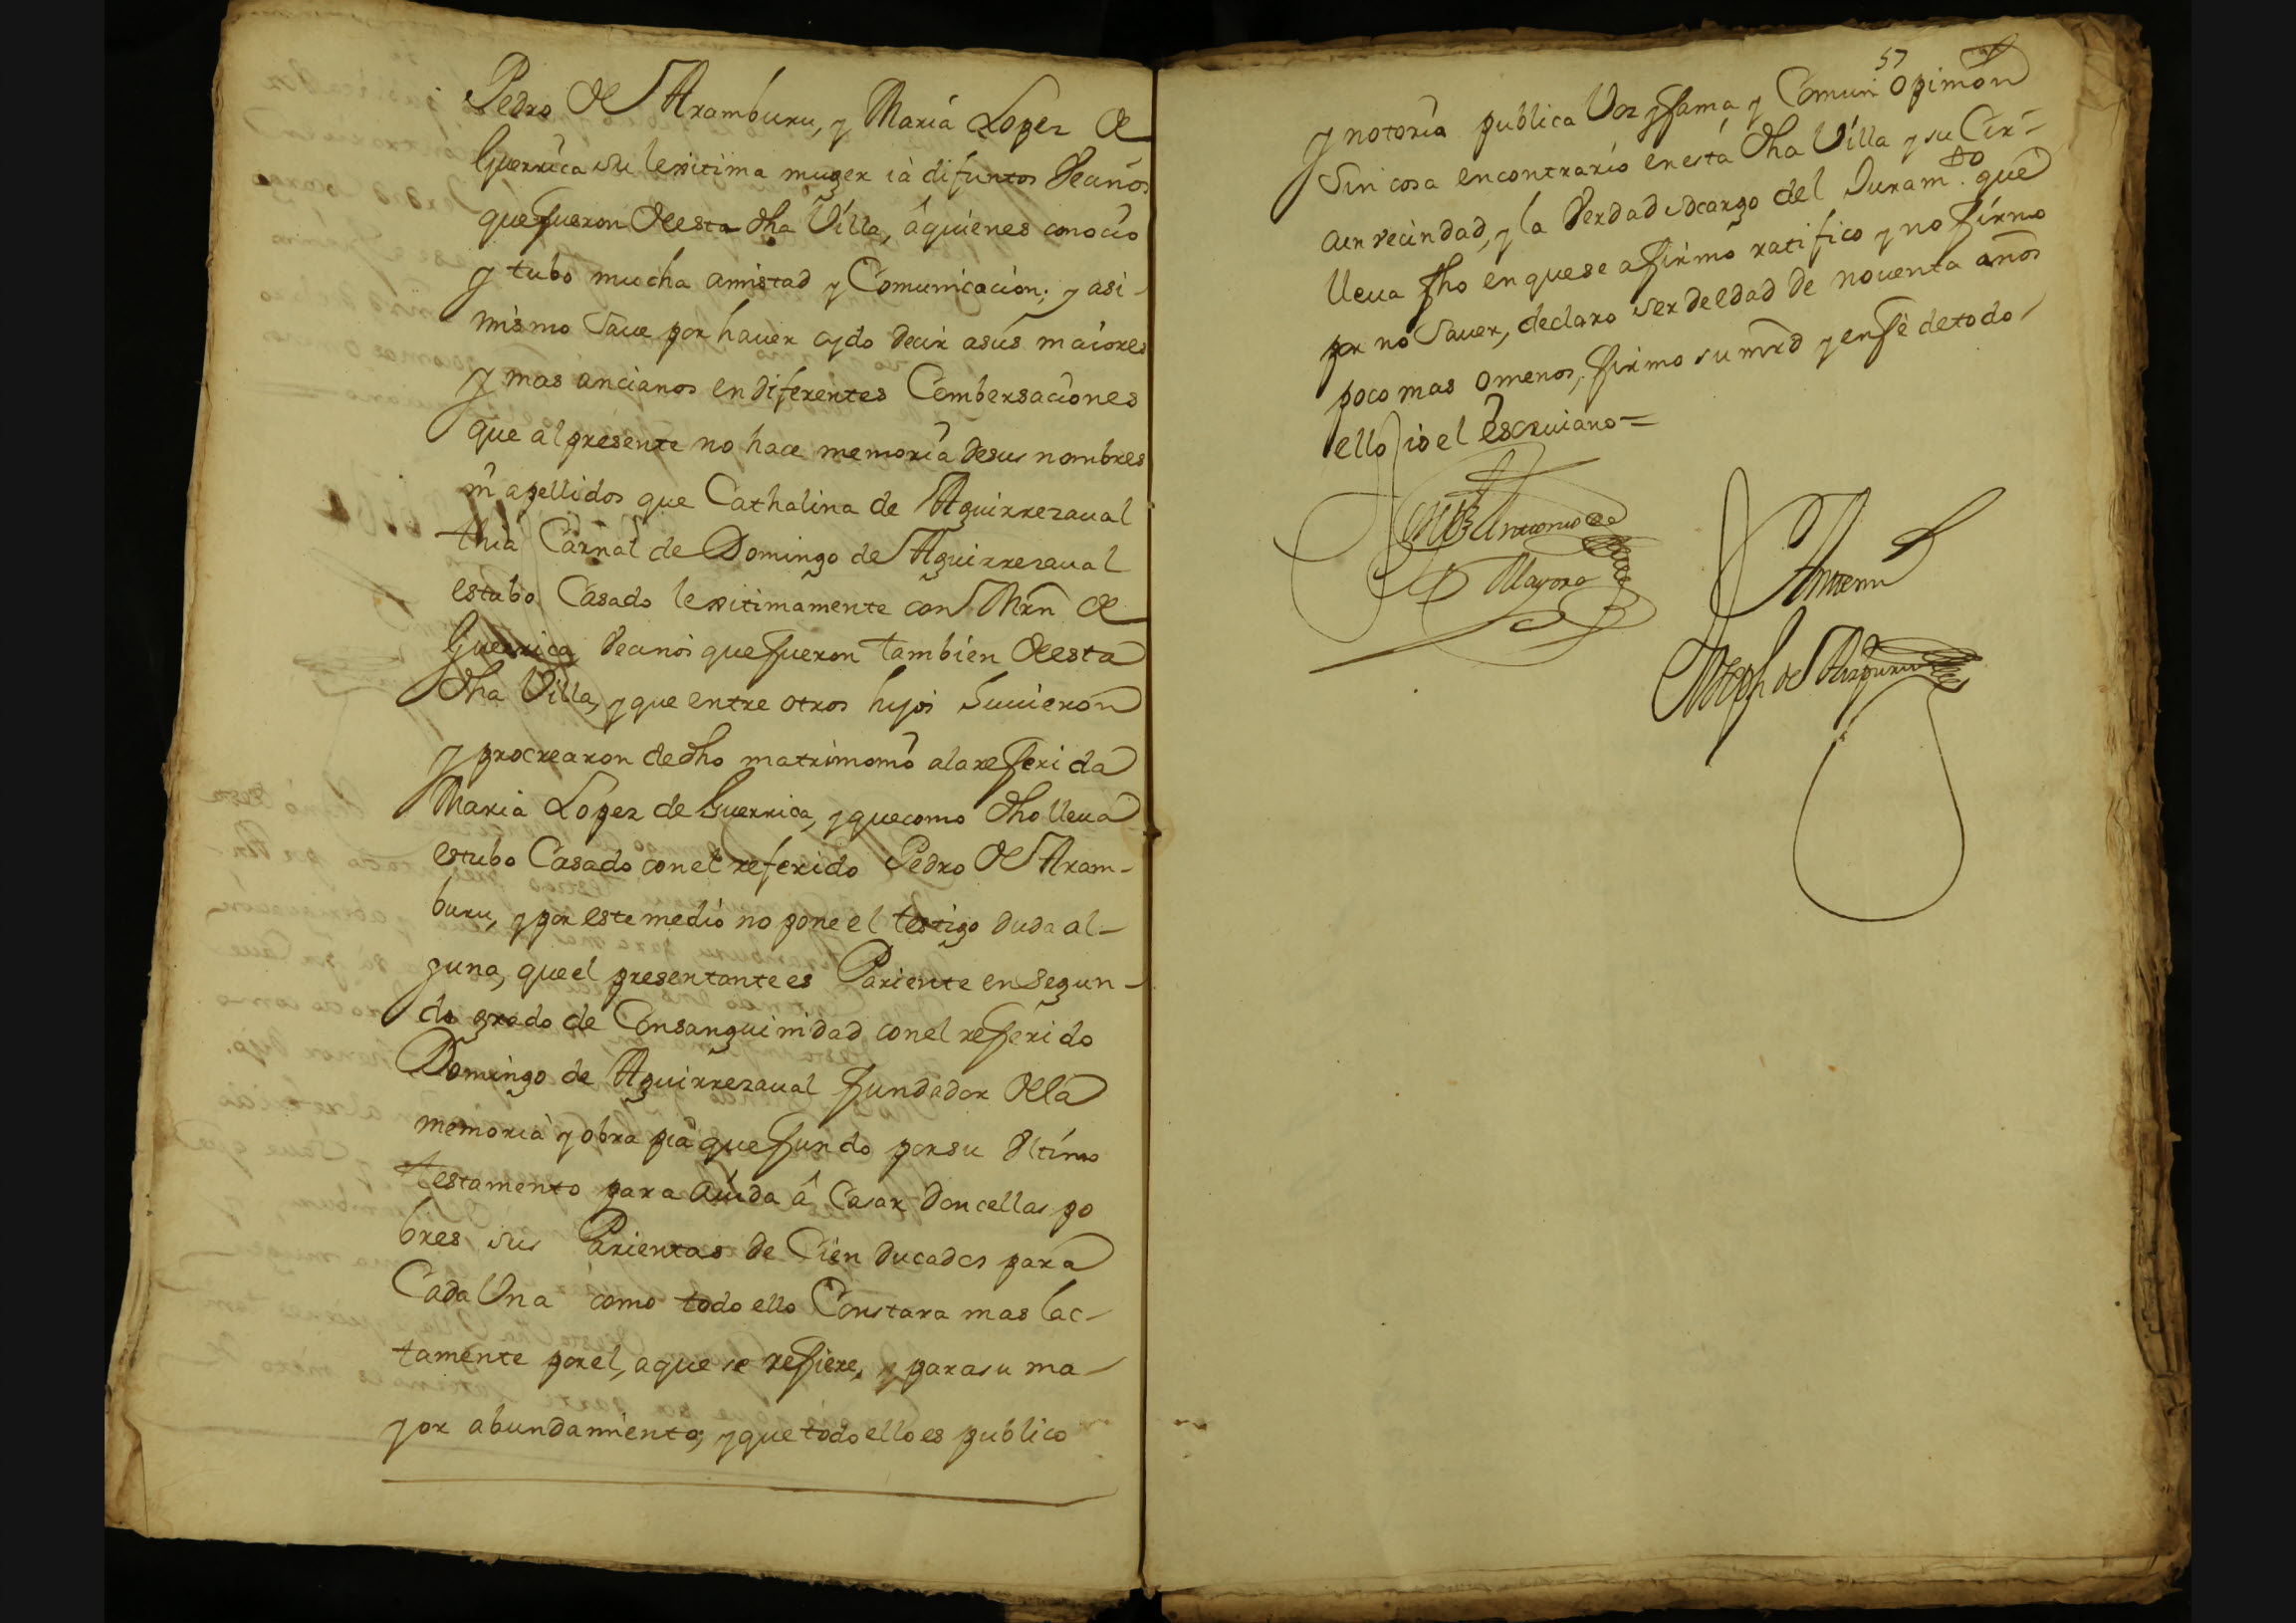 Pedro de Aramburu, y Maria Lopez de
Guerrica su lexitima muger ia difuntos Vecinos
que fueron de esta dha Villa, â quienes conocio
y tubo mucha amistad y Comunicacion; y asi-
mismo Save por haver oydo decir asus maiores
y mas ancianos en diferentes Combersaciones
que al presente no hace memoria de sus nombres
ni apellidos que Cathalina de Aguirrezaual
thia Carnal de Domingo de Aguirrezaual
estubo Casado lexitimamente con Mrn de
Guerrica Vecinos que fueron tambien de esta
dha Villa, y que entre otros hijos huuieron
y procrearon de dho matrimonio ala referida
Maria Lopez de Guerrica, y que como dho lleua
estubo Casado con el referido Pedro de Aram-
buru, y por este medio no pone el testigo duda al-
guna, que el presentante es Pariente en Segun-
do grado de Consanguinidad con el referido
Domingo de Aguirrezaual fundador de la
memoria y obra pia que fundo por su Vltimo
testamento para aiuda â Casar doncellas po
bres sus Parientas de Cien ducados para
Cada Vna como todo ello Constara mas lac-
tamente por el, a que se refiere, y para su ma-
yor abundamiento, y que todo ello es publico
57
y notorio publica Voz y fama, y Comun Opinion
Sin cosa en contrario en esta dha Villa y su Cir-
cun vecindad, y la Verdad socargo del Juramto. que
lleua fho en que se afirmo ratifico y no firmo
por no Sauer, declaro ser de edad de noventa años
poco mas o menos, firmo su mrd y en fe de todo
ello io el escriuano =
Antonio de
Mayora
Antemi
Joseph de Aizpuru